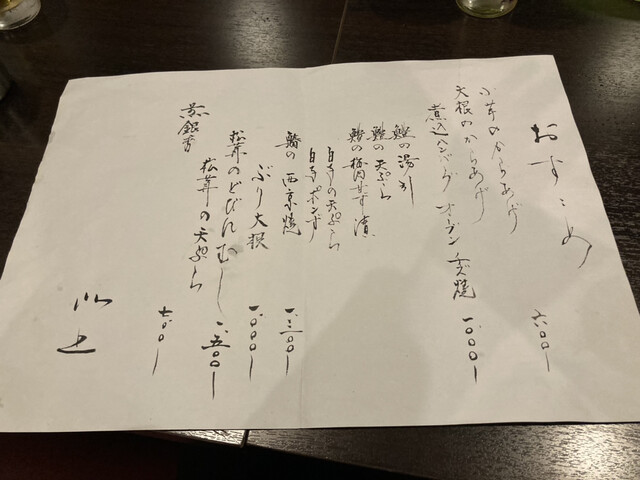 おすゝめ
小芋のからあげ 六〇〇ー
大根のからあげ
煮込ハンバーグ オーブンチーズ焼 一、〇〇〇ー
鱧の湯引
鱧の天ぷら
の梅肉甘ず漬
白子の天ぷら
白子ポンず
鰆の西京焼 一、三〇〇ー
ぶり大根 一、〇〇〇ー
松茸のどびんむし
松茸の天ぷら 一、五〇〇ー
煎銀杏 七〇〇ー
以上